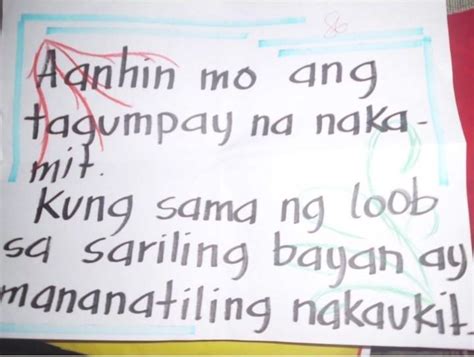 86
Aanhin mo ang
tagumpay na naka-
mit.
Kung sama ng loob
sa sariling bayan ay
mananatiling nakaukit.